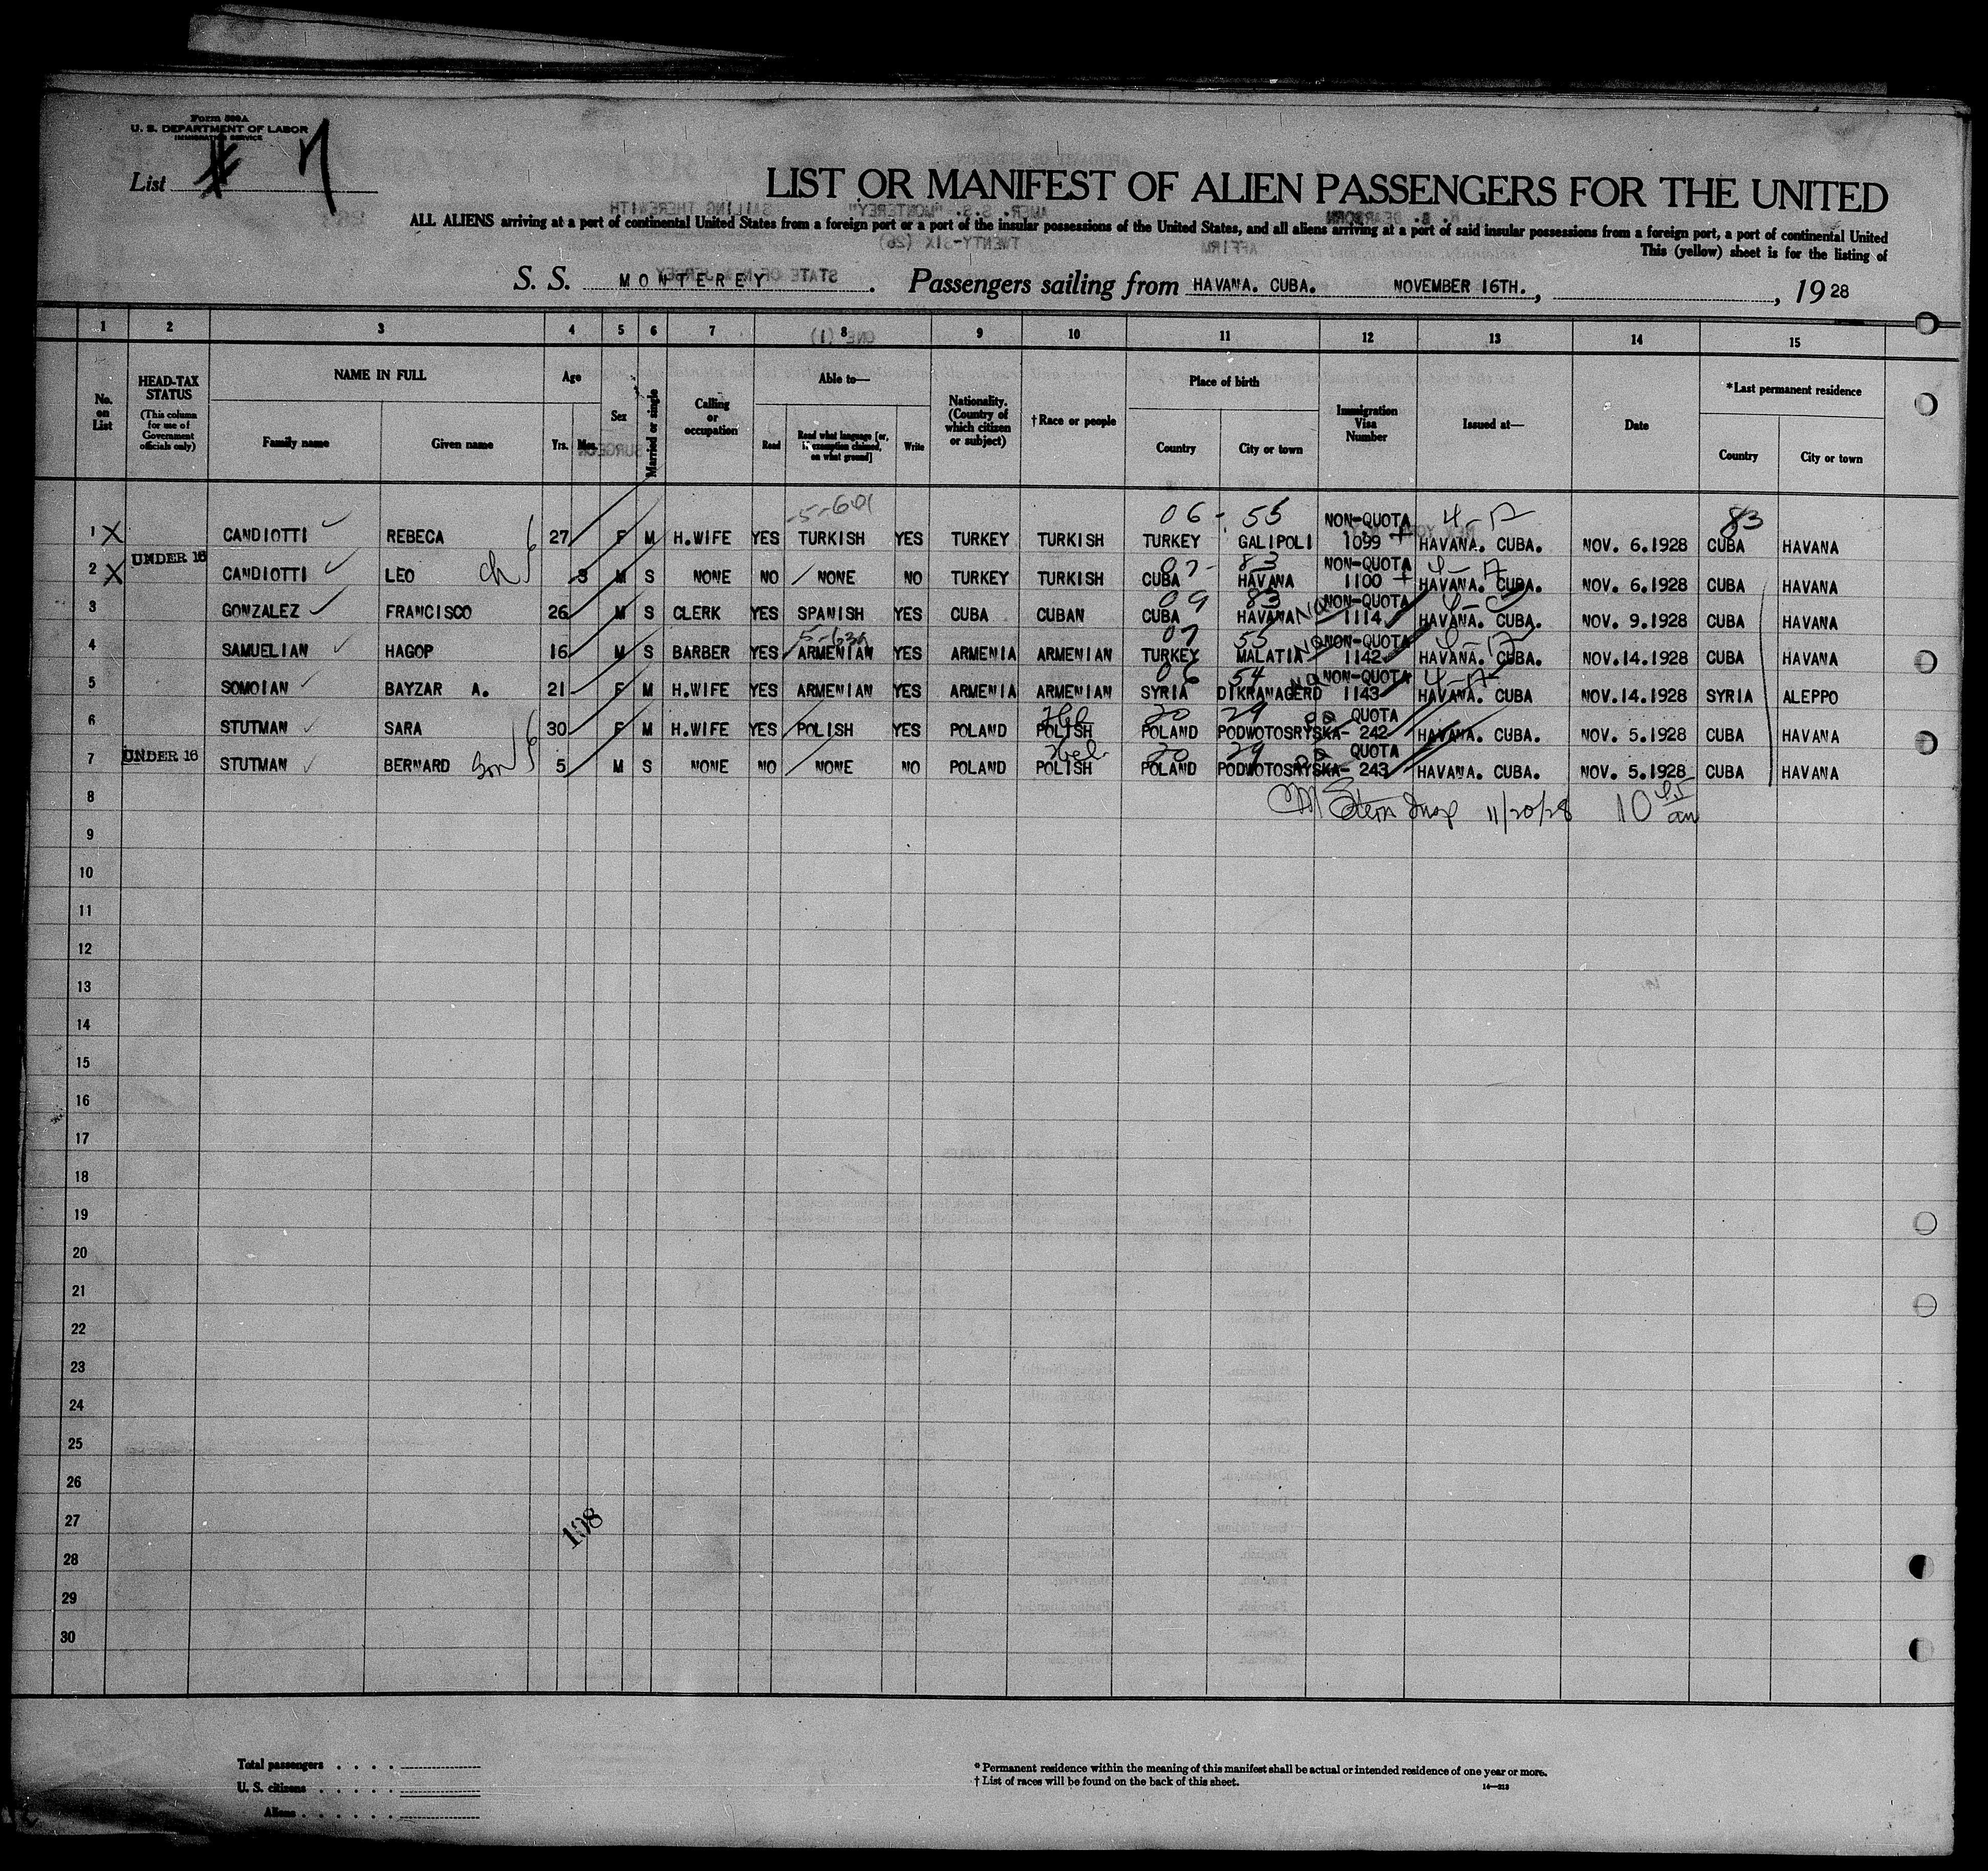 Form 500A
U. S. DEPARTMENT OF LABOR
IMMIGRATION SERVICE
List # 7
LIST OR MANIFEST OF ALIEN PASSENGERS FOR THE UNITED
ALL ALIENS arriving at a port of continental United States from a foreign port or a port of the insular possessions of the United States, and all aliens arriving at a port of said insular possessions from a foreign port, a port of continental United
This (yellow) sheet is for the listing of
S. S. MONTEREY. Passengers sailing from HAVANA. CUBA. NOVEMBER 16TH., , 1928
1 2 3 4 5 6 7 8 9 10 11 12 13 14 15
No. on List
HEAD-TAX STATUS (This column for use of Government officials only)
NAME IN FULL
Family name Given name
Age
Yrs. Mos.
Sex
Married or single
Calling or occupation
Able to—
Read Read what language [or, if exemption claimed, on what ground] Write
Nationality. (Country of which citizen or subject)
†Race or people
Place of birth
Country City or town
Immigration Visa Number
Issued at—
Date
*Last permanent residence
Country City or town
06 - 55 NON-QUOTA 83
1 X CANDIOTTI REBECA 27 F M H.WIFE YES TURKISH YES TURKEY TURKISH TURKEY GALIPOLI 1099 HAVANA. CUBA. NOV. 6.1928 CUBA HAVANA
UNDER 16 83 NON-QUOTA
2 X CANDIOTTI LEO ch 3 M S NONE NO NONE NO TURKEY TURKISH CUBA HAVANA 1100 HAVANA. CUBA. NOV. 6.1928 CUBA HAVANA
09 83 NON-QUOTA
3 GONZALEZ FRANCISCO 26 M S CLERK YES SPANISH YES CUBA CUBAN CUBA HAVANA 1114 HAVANA. CUBA. NOV. 9.1928 CUBA HAVANA
07 55 NON-QUOTA
4 SAMUELIAN HAGOP 16 M S BARBER YES ARMENIAN YES ARMENIA ARMENIAN TURKEY MALATIA 1142 HAVANA. CUBA. NOV.14.1928 CUBA HAVANA
06 54 NON-QUOTA
5 SOMOIAN BAYZAR A. 21 F M H.WIFE YES ARMENIAN YES ARMENIA ARMENIAN SYRIA DIKRANAGERD 1143 HAVANA. CUBA NOV.14.1928 SYRIA ALEPPO
Heb 20 29 QUOTA
6 STUTMAN SARA 30 F M H.WIFE YES POLISH YES POLAND POLISH POLAND PODWOTOSRYSKA- 242 HAVANA. CUBA. NOV. 5.1928 CUBA HAVANA
UNDER 16 Heb 20 29 QUOTA
7 STUTMAN BERNARD Son 5 M S NONE NO NONE NO POLAND POLISH POLAND PODWOTOSRYSKA- 243 HAVANA. CUBA. NOV. 5.1928 CUBA HAVANA
8 Stern Insp 11/20/28 10 am
9
10
11
12
13
14
15
16
17
18
19
20
21
22
23
24
25
26
27
108
28
29
30
Total passengers
U. S. citizens
Aliens
* Permanent residence within the meaning of this manifest shall be actual or intended residence of one year or more.
† List of races will be found on the back of this sheet. 14—213